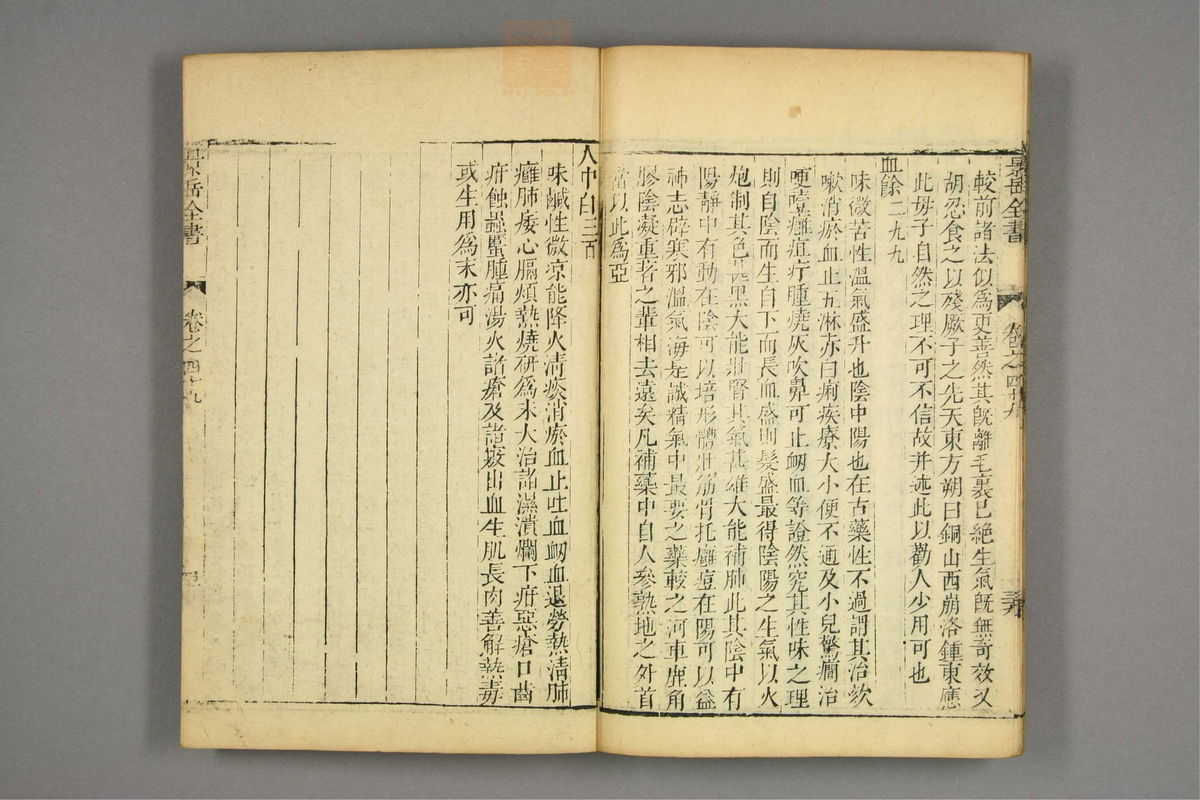 景岳全書 卷之四十九
較前諸法似爲更善然其旣離毛裏已絶生氣旣無奇效又
胡忍食之以殘厥子之先天東方朔曰銅山西崩洛鍾東應
此母子自然之理不可不信故并述此以勸人少用可也
血餘二九九
味微苦性溫氣盛升也陰中陽也在古藥性不過謂其治欬
嗽消瘀血止五淋赤白痢疾療大小便不通及小兒驚癇治
哽噎癰疽疔腫燒灰吹鼻可止衂血等證然究其性味之理
則自陰而生自下而長血盛則髮盛最得陰陽之生氣以火
炮制其色甚黑大能壯腎其氣甚雄大能補肺此其陰中有
陽靜中有動在陰可以培形體壯筋骨托癰痘在陽可以益
神志辟寒邪溫氣海是誠精氣中最要之藥較之河車鹿角
膠陰凝重著之輩相去遠矣凡補藥中自人參熟地之外首
當以此爲亞
人中白三百
味鹹性微凉能降火淸痰消瘀血止吐血衂血退勞熱淸肺
癰肺痿心膈煩熱燒研爲末大治諸濕潰爛下疳惡瘡口齒
疳蝕蟲䘌腫痛湯火諸瘡及諸竅出血生肌長肉善解熱毒
或生用爲末亦可
景岳全書 卷之四十九